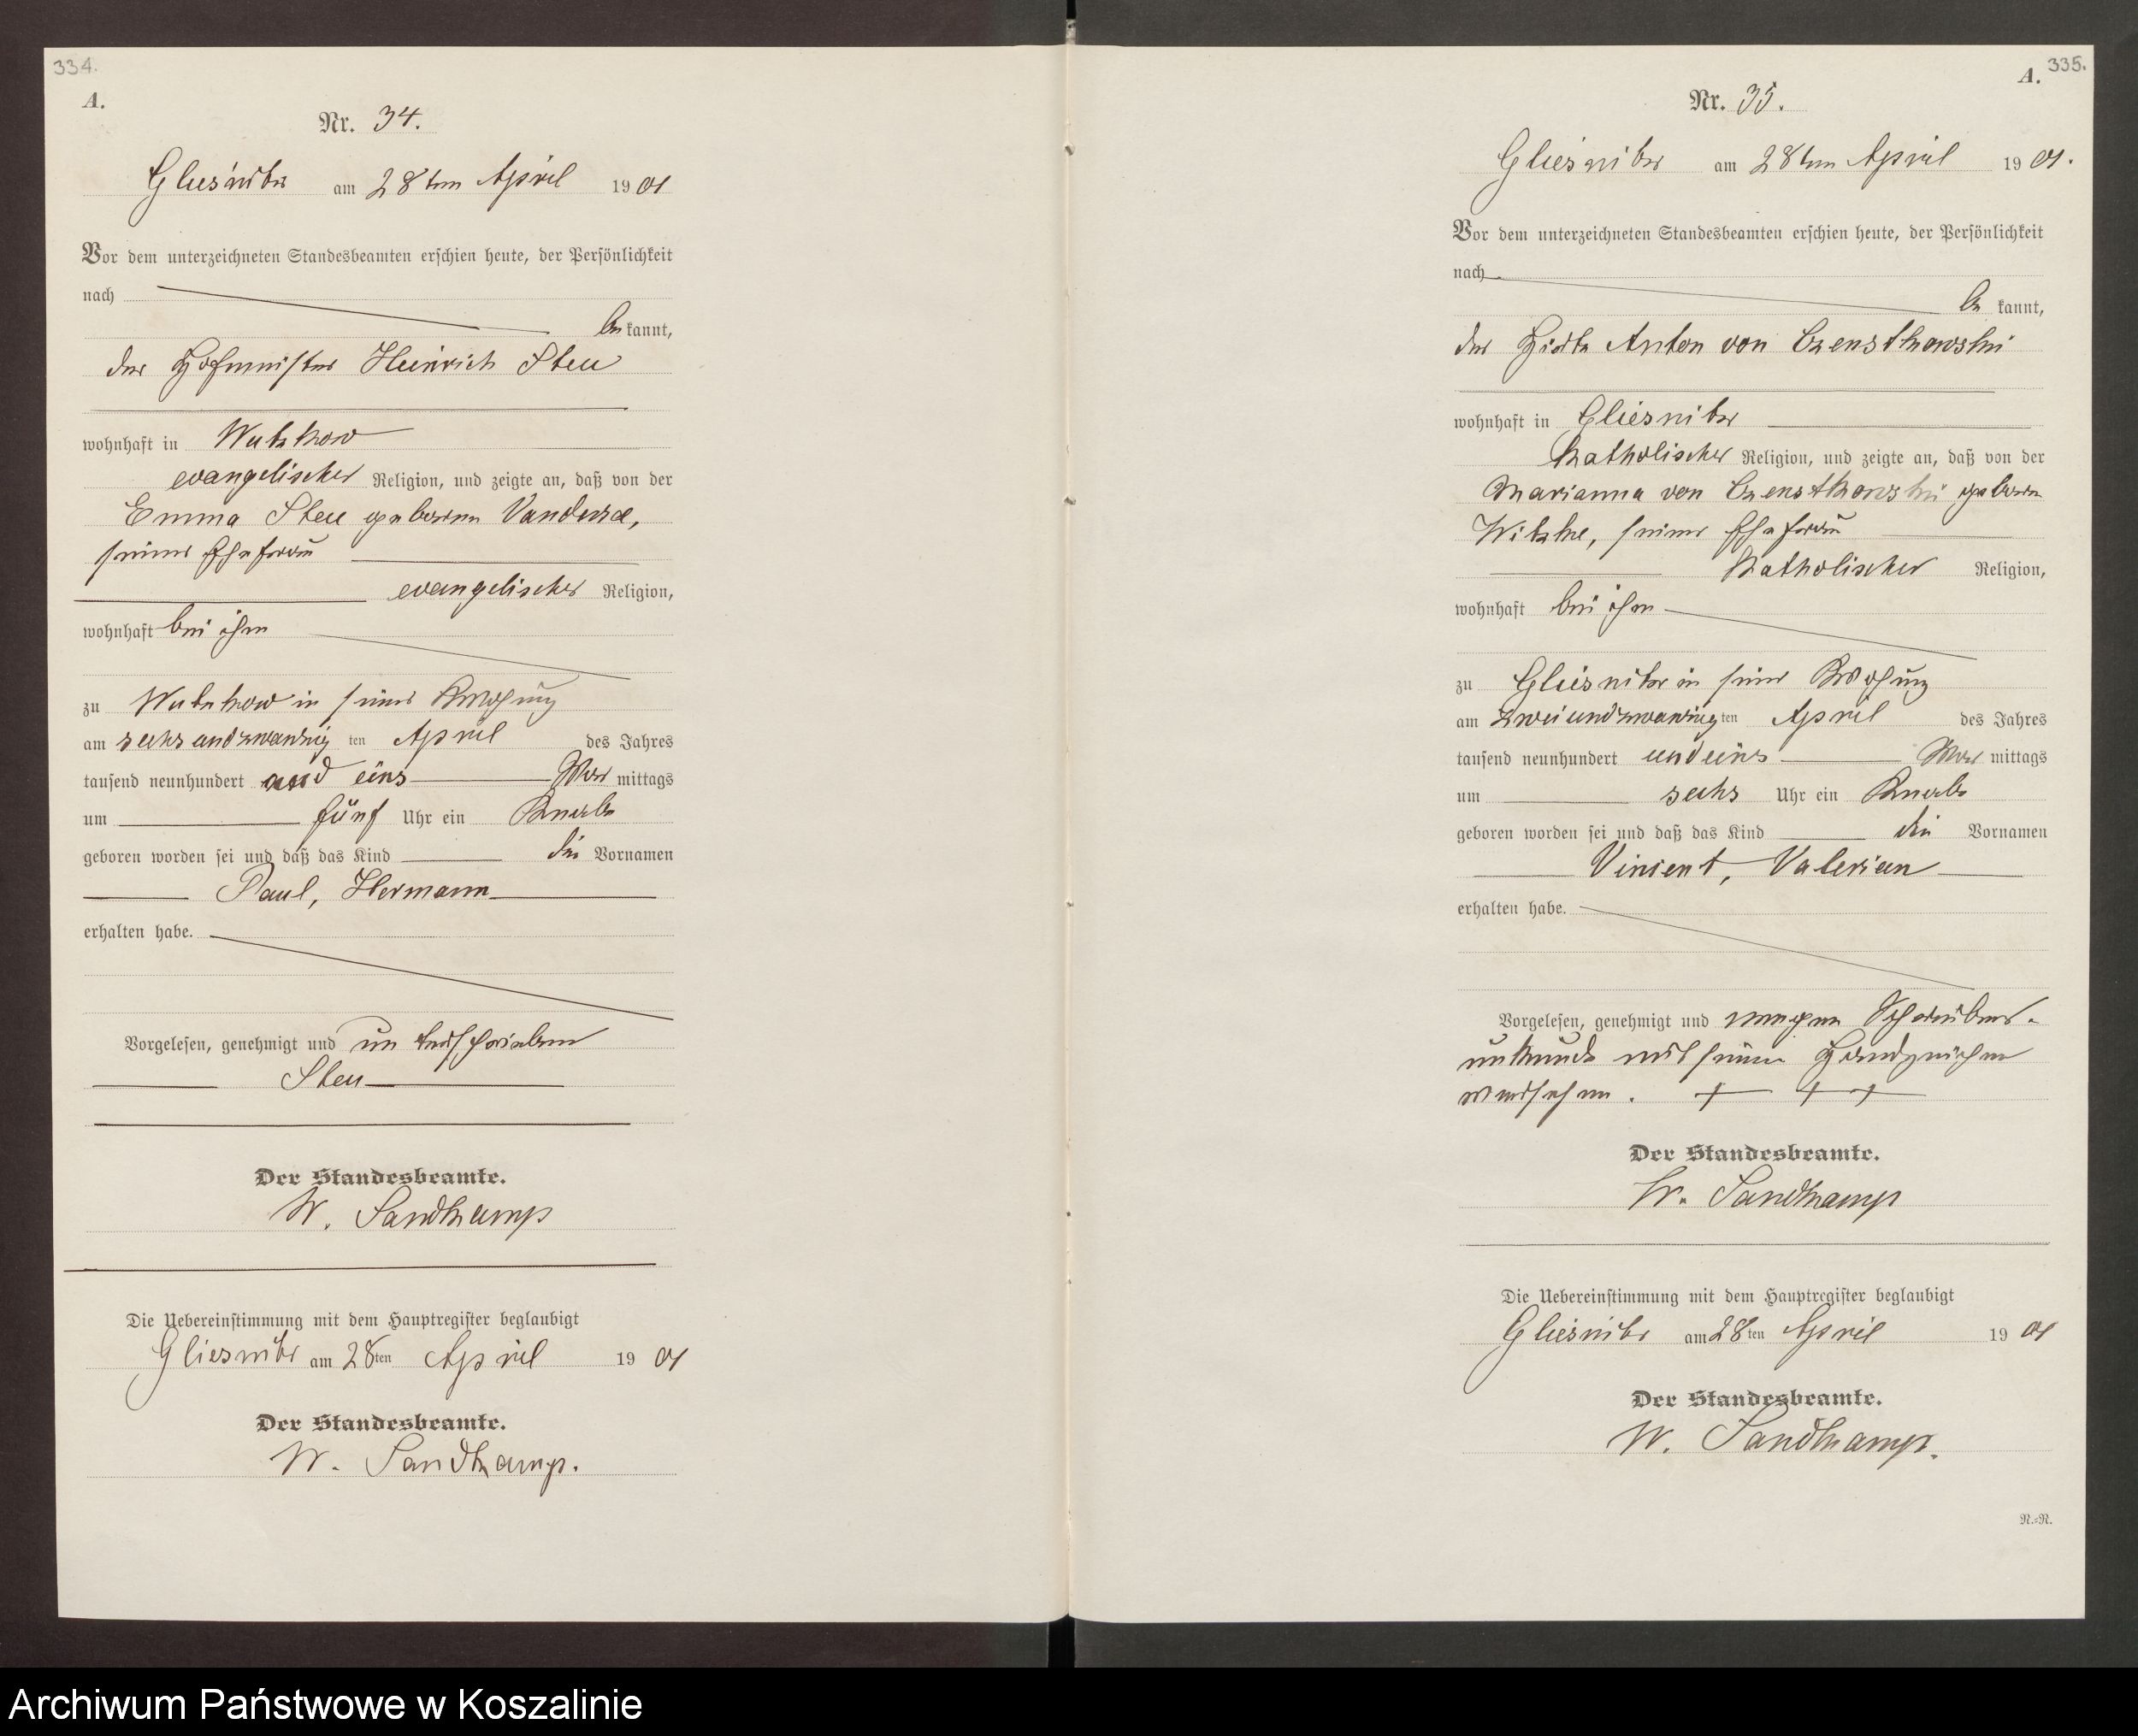 334.
A.
Nr. 34.
Gliesnitz am 28ten April 1901
Vor dem unterzeichneten Standesbeamten erschien heute, der Persönlichkeit
nach
bekannt,
der Hofmeister Heinrich Steu
wohnhaft in Wutzkow
evangelischer Religion, und zeigte an, daß von der
Emma Steu geborene
seiner Ehefrau
evangelischer Religion,
wohnhaft bei ihm
zu Wutzkow in seiner Behausung
am sechsundzwanzigten April des Jahres
tausend neunhundert und eins Vormittags
um fünf Uhr ein Knabe
geboren worden sei und daß das Kind die Vornamen
Paul, Hermann
erhalten habe.
Vorgelesen, genehmigt und unterschrieben
Steu
Der Standesbeamte.
W. Sandkamp
Die Uebereinstimmung mit dem Hauptregister beglaubigt
Gliesnitz am 28ten April 1901
Der Standesbeamte.
W. Sandkamp.
335.
A.
Nr. 35.
Gliesnitz am 28ten April 1901.
Vor dem unterzeichneten Standesbeamten erschien heute, der Persönlichkeit
nach
bekannt,
der Hirte Anton von Czensthowski
wohnhaft in Gliesnitz
katholischer Religion, und zeigte an, daß von der
Marianna von Czensthowski geborene
Witzke, seiner Ehefrau
katholischer Religion,
wohnhaft bei ihm
zu Gliesnitz in seiner Behausung
am zweiundzwanzigten April des Jahres
tausend neunhundert undeins Vormittags
um sechs Uhr ein Knabe
geboren worden sei und daß das Kind die Vornamen
Vinsent, Valerian
erhalten habe.
Vorgelesen, genehmigt und wegen Schreibens-
unkunde mit seinem Handzeichen
versehen. + + +
Der Standesbeamte.
W. Sandkamp
Die Uebereinstimmung mit dem Hauptregister beglaubigt
Gliesnitz am 28ten April 1901
Der Standesbeamte.
W. Sandkamp.
N.=N.
Archiwum Państwowe w Koszalinie